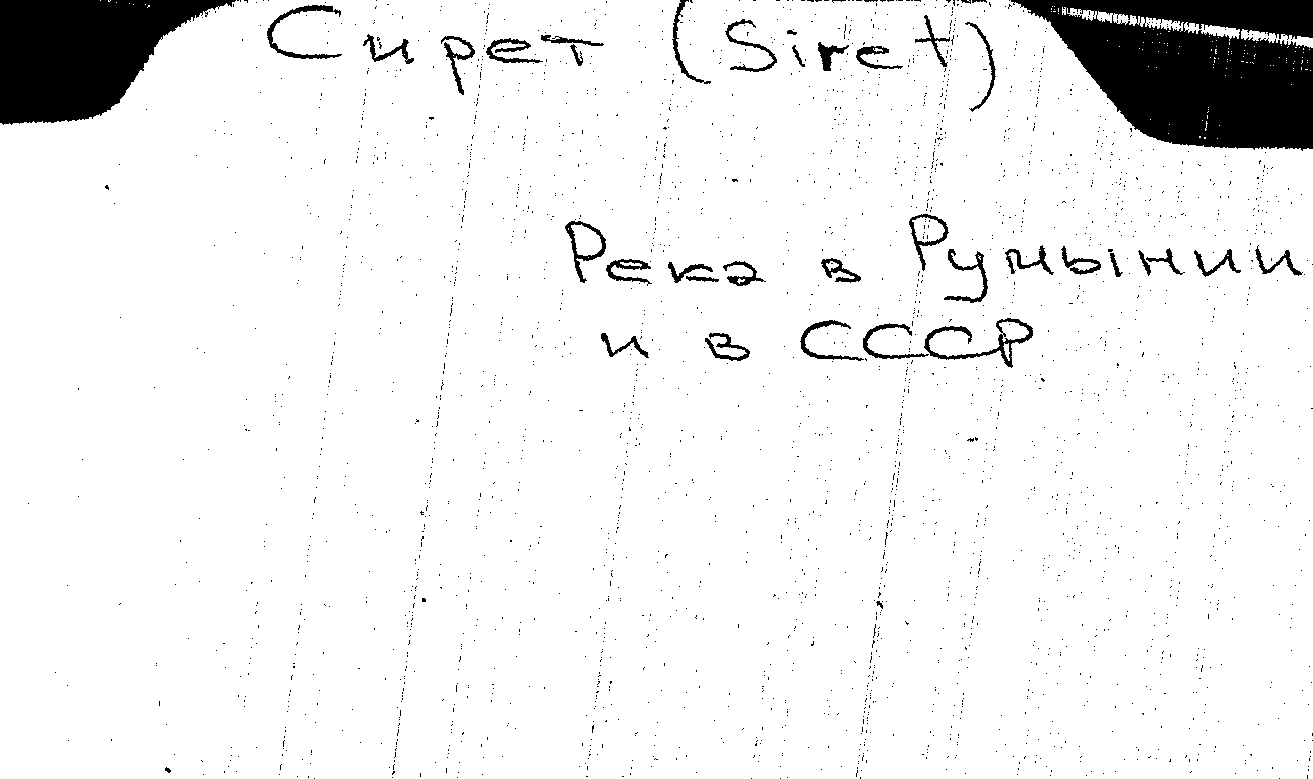 Сирет (Siret)
Река в Румынии
и в СССР